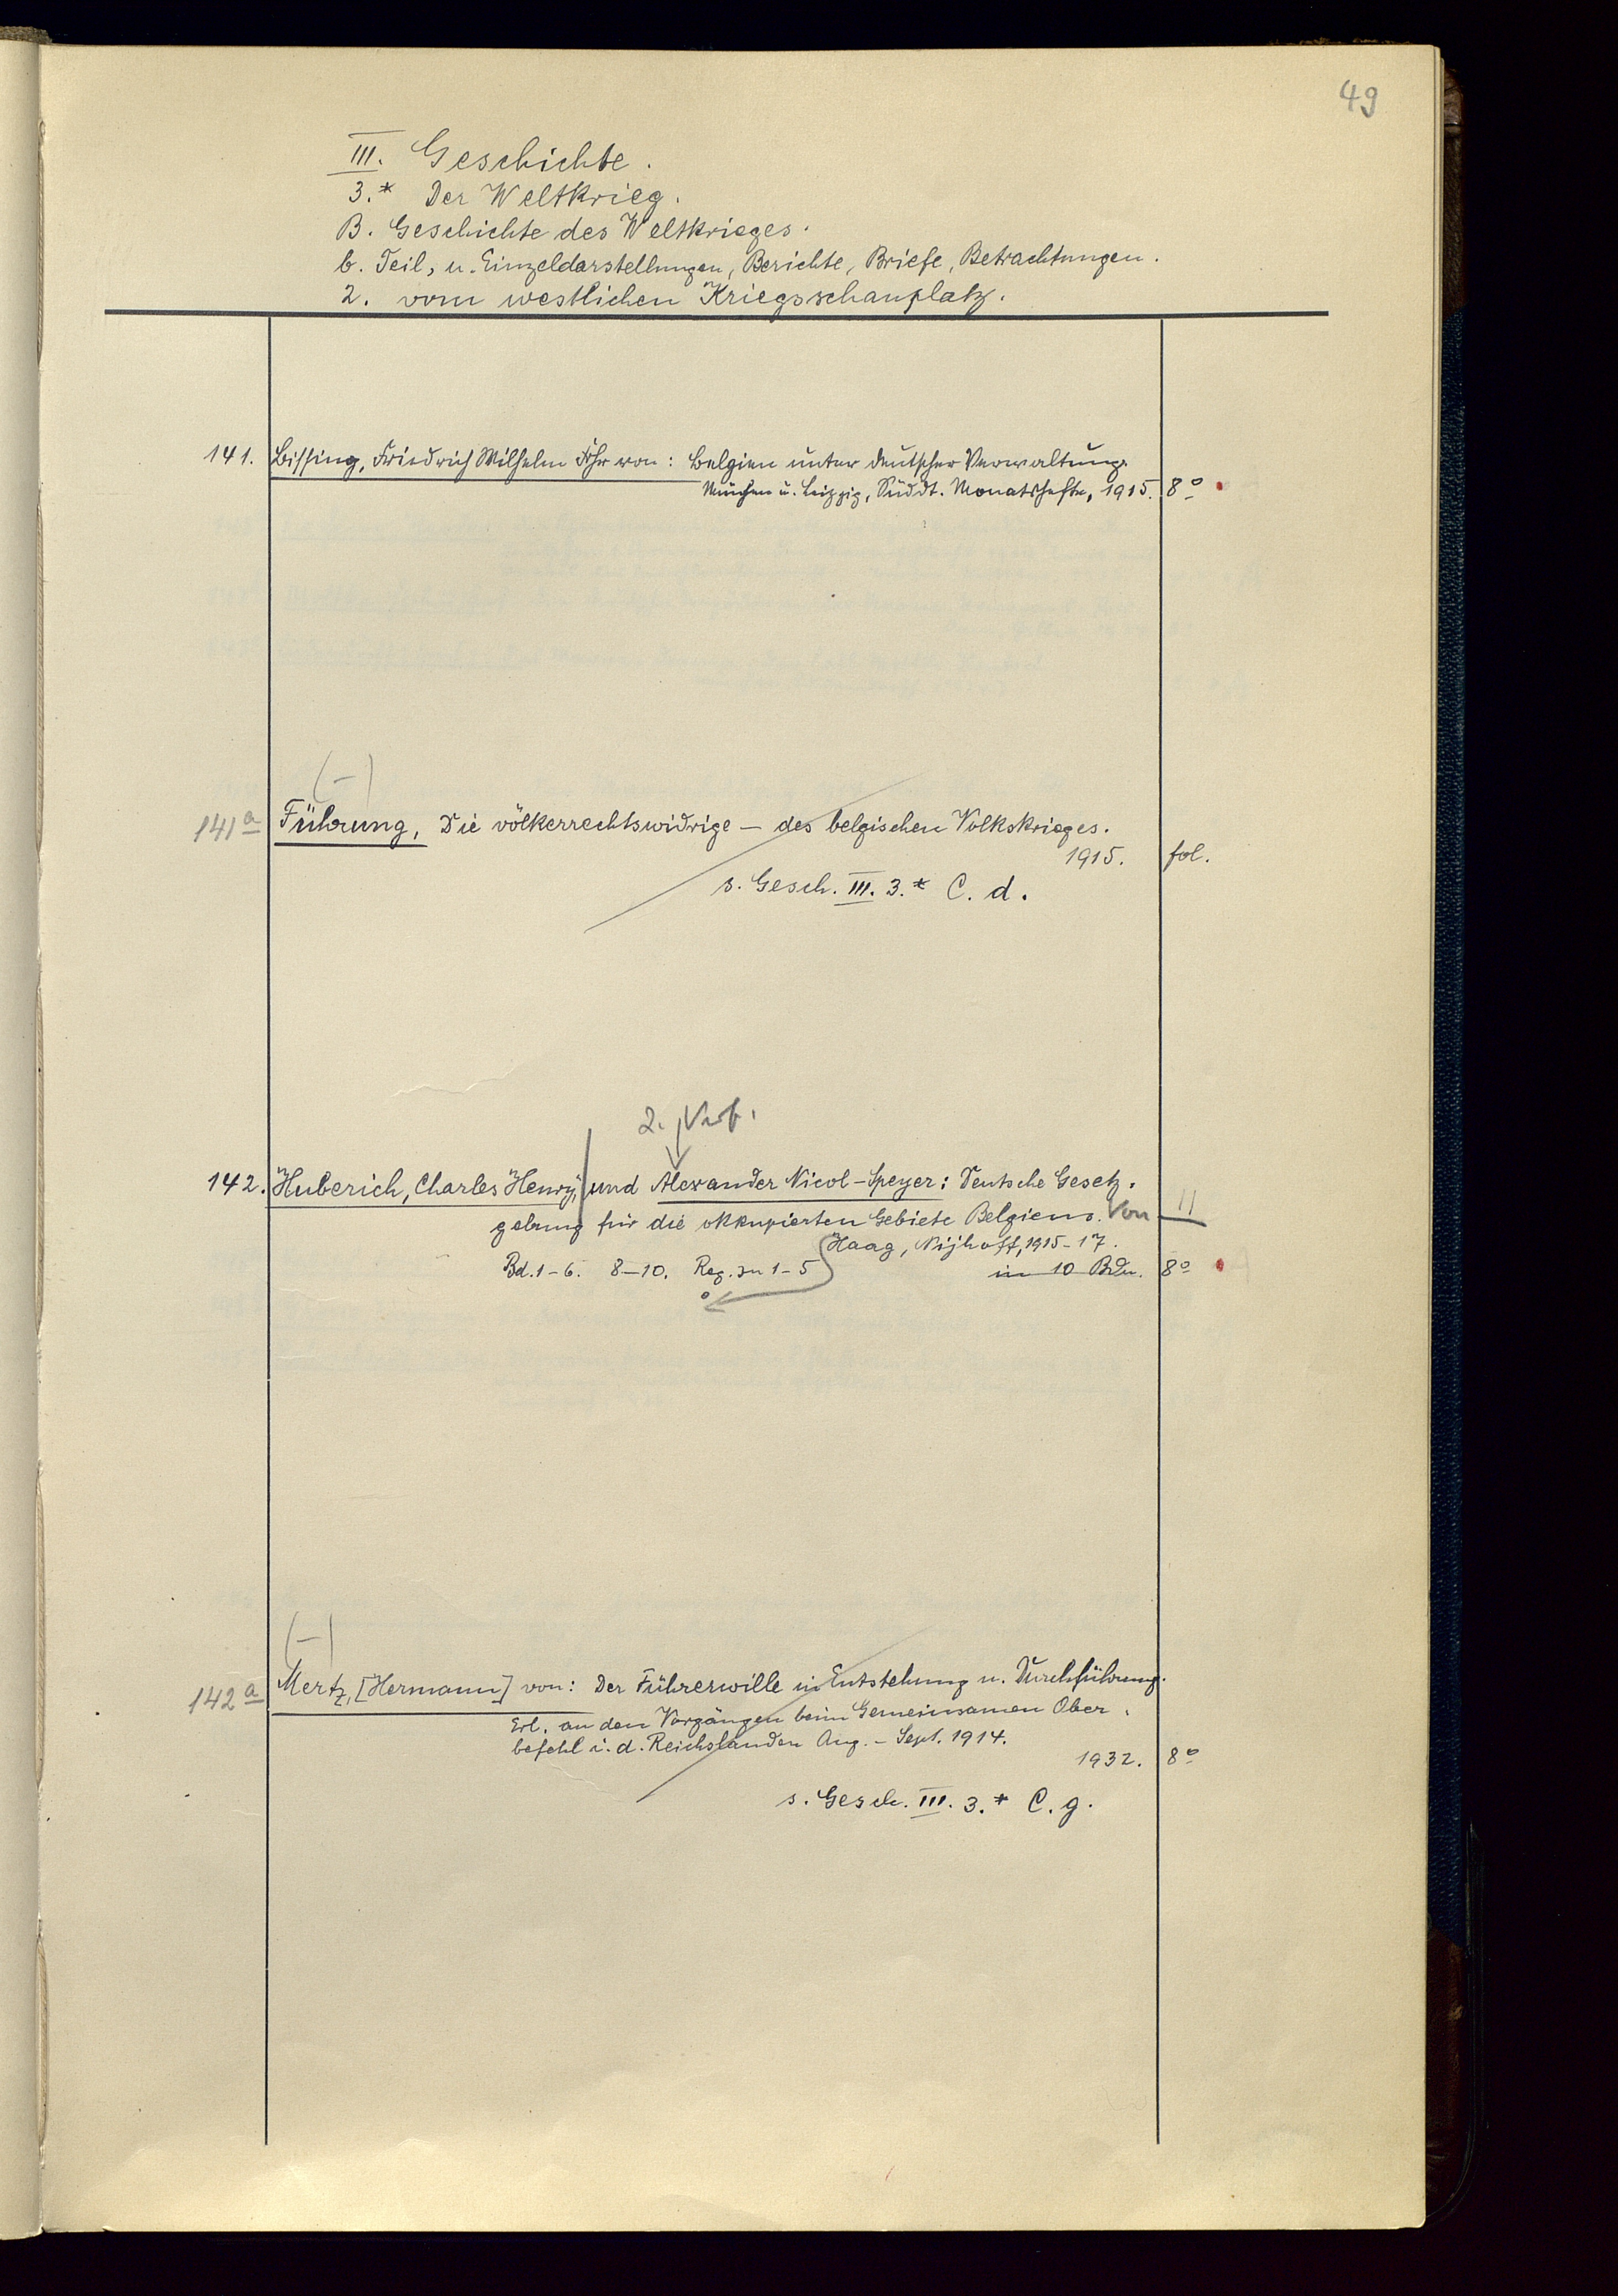 49
III. Geschichte.
3.* Der Weltkrieg.
B. Geschichte des Weltkrieges.
b. Teil, u. Einzeldarstellungen, Berichte, Briefe, Betrachtungen.
2. vom westlichen Kriegsschauplatz.
141. Bissing, Friedrich Wilhelm Frhr von: Belgien unter deutscher Verwaltung.
München u. Leipzig, Südd. Monatshefte, 1915. 8°
(-)
141a Führung, Die völkerrechtswidrige – des belgischen Volkskrieges.
1915. fol.
s. Gesch. III. 3.* C. d.
2. Verf.
142. Huberich, Charles Henry, und Alexander Nicol-Speyer: Deutsche Gesetz-
gebung für die okkupierten Gebiete Belgiens. Von 11
Haag, Nijhoff, 1915-17.
Bd. 1-6. 8-10. Reg. zu 1-5 in 10 Bdn. 8°
(-)
142a Mertz, [Hermann] von: Der Führerwille in Entstehung u. Durchführung.
Erl. an den Vorgängen beim Gemeinsamen Ober-
befehl i. d. Reichslanden Aug. - Sept. 1914.
1932. 8°
s. Gesch. III. 3.* C. g.